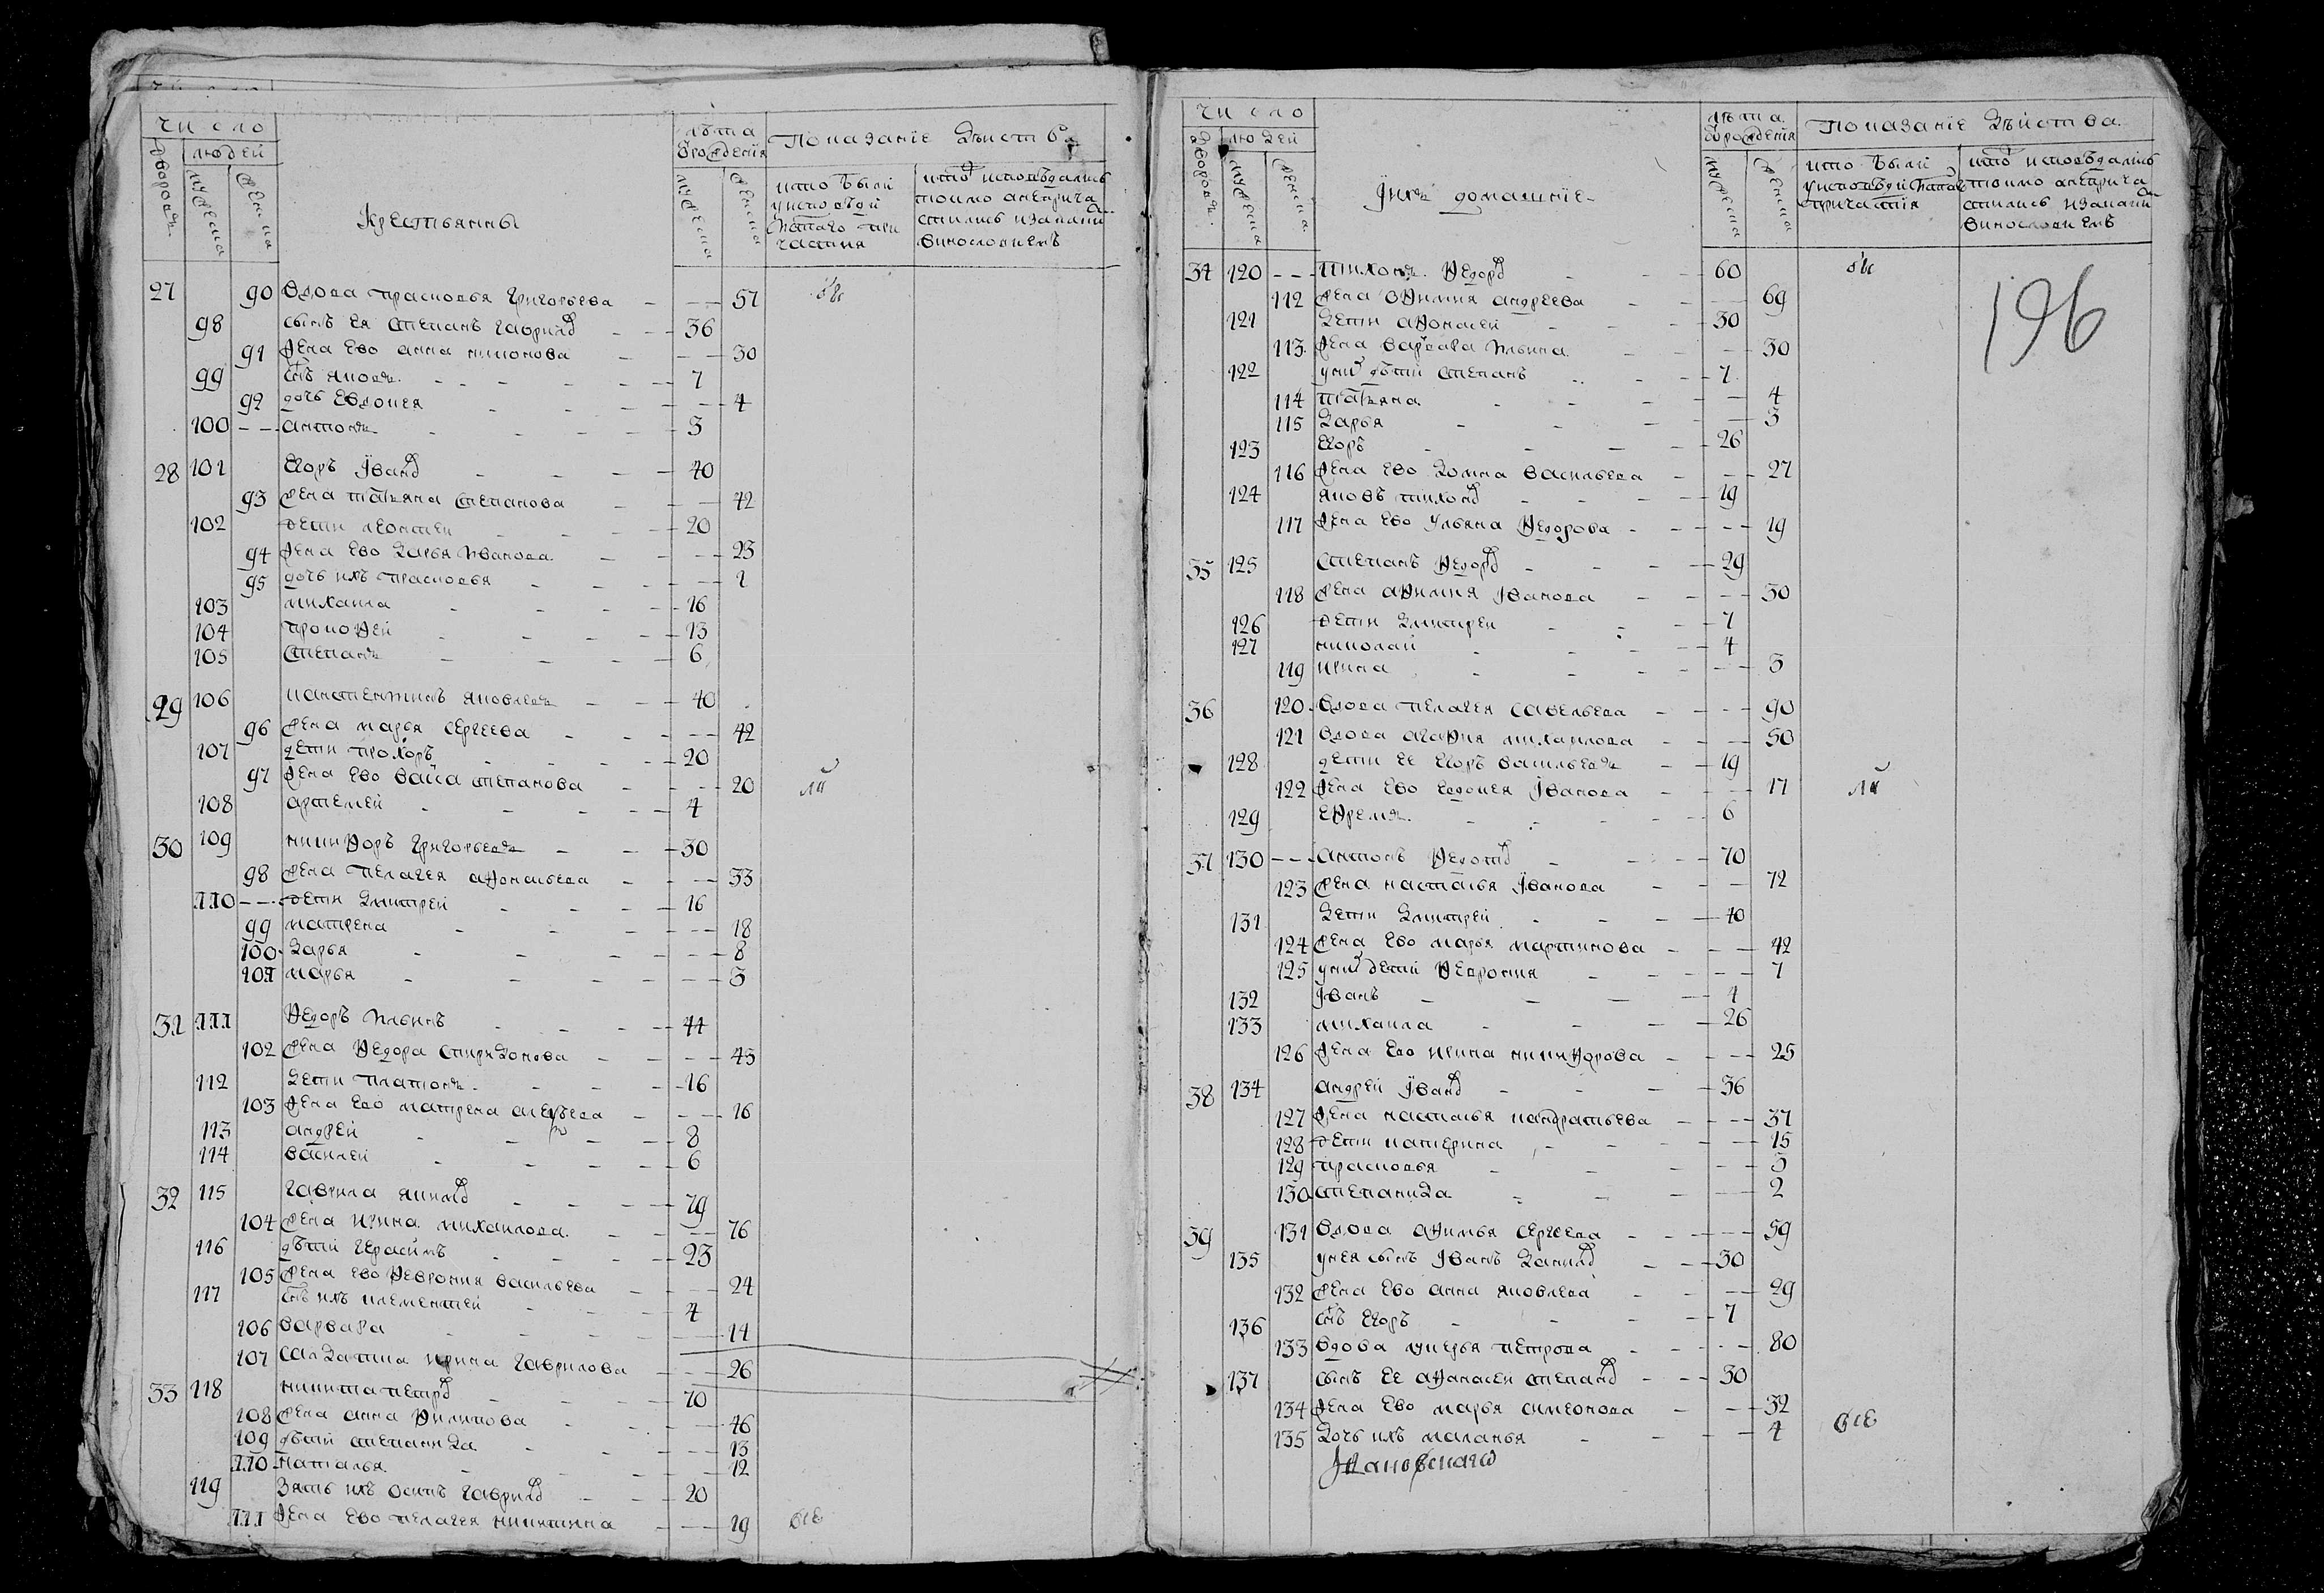 число
дворовъ
людей
мужеска
женска
Крестьянѣ
лѣта ѿрожденїя
мужеска
женска
Показанїе Дѣйства
кто были уисповѣди исвѧтаго причастия
кто исповѣдались токмо анепричастились изакаким винословиемъ
27 90 Вдова прасковья григорьева 57 были
98 сынъ ея степанъ гаврилов 36
91 жена ево анна никонова 30
99 снъ яковъ 7
92 дочь Евдокея 4
100 антонъ 3
28 101 Егоръ Їванов 40
93 жена татьяна степанова 42
102 дети леонтеи 20
94 жена ево дарья иванова 23
95 дочь ихъ прасковья 1
103 михаила 16
104 прокофей 13
105 степанъ 6
29 106 констентинъ яковлевъ 40
96 жена марья сергеева 42
107 дети прохоръ 20
97 жена ево васса степанова 20
ли
108 артемей 4
30 109 никифоръ григорьевъ 30
98 жена пелагея афонасьева 33
110 дети дмитрей 16
99 матрена 18
100 дарья 8
101 марья 3
31 111 федоръ ильинъ 44
102 жена федора спиридонова 45
112 дети платонъ 16
103 жена ево матрена алеѯеева 16
113 андрей 8
114 василей 6
32 115 гаврила якимов 79
104 жена ирина михаилова 76
116 дѣти герасимъ 23
105 жена ево феврония васильева 24
117 снъ ихъ клементей 4
106 варвара 14
107 салдатка ирина гаврилова 26
33 118 никита петров 70
108 жена анна филипова 46
109 дѣти степанида 13
110 наталья 12
119 зять ихъ осипъ гаврилов 20
111 жена ево пелагея никитина 19 все
число
дворовъ
людей
мужеска
женска
Їихъ домашнїе
лѣта ѿрожденїя
мужеска
женска
Показанїе Дѣйства
кто были уисповѣди исвѧтаго причастїя
кто исповѣдались токмо анепричастились изакаким винословиемъ
196
34 120 тихонъ федоров 60 были
112 жена Ефимия андреева 69
121 дети афонасей 30
113 жена варвара ильина 30
122 уних дѣти степанъ 7
114 татьяна 4
115 дарья 3
123 Егоръ 26
116 жена ево домна васильева 27
124 яковъ тихонов 19
117 жена ево ульяна федорова 19
35 125 степанъ федоров 29
118 жена афимия Їванова 30
126 дети дмитреи 7
127 николаи 4
119 ирина 3
36 120 Вдова пелагея савельева 90
121 Вдова агафия михаилова 50
128 дети ее Егоръ васильевъ 19
122 жена ево евдокея Їванова 17
ли
129 Ефремъ 6
37 130 антонъ федотов 70
123 жена настасья Їванова 72
131 дети дмитрей 40
124 жена ево марья мартинова 42
125 уних дети феврония 7
132 Їванъ 4
133 михаила 26
126 жена ево ирина никифорова 25
38 134 андрей Їванов 36
127 жена настасья кандратьева 37
128 дети катерина 15
129 прасковья 3
130 степанида 2
39 131 Вдова афимья сергеева 59
135 унея сынъ Їванъ данилов 30
132 жена ево анна яковлева 29
136 снъ Егоръ 7
133 Вдова лукерья петрова 80
137 сынъ ее афанасеи степанов 30
134 жена ево марья симеонова 32
135 дочь ихъ маланья 4 все